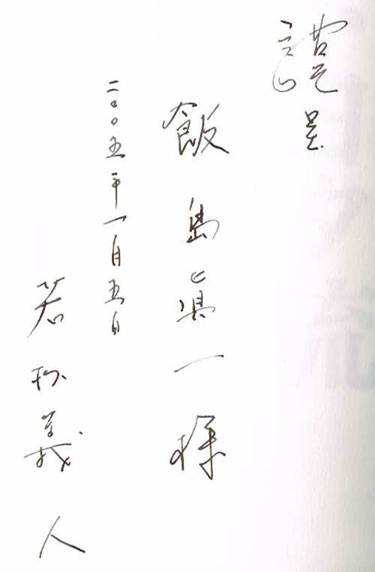 謹呈
飯島眞一様
二〇〇五年一月五日
若松義人